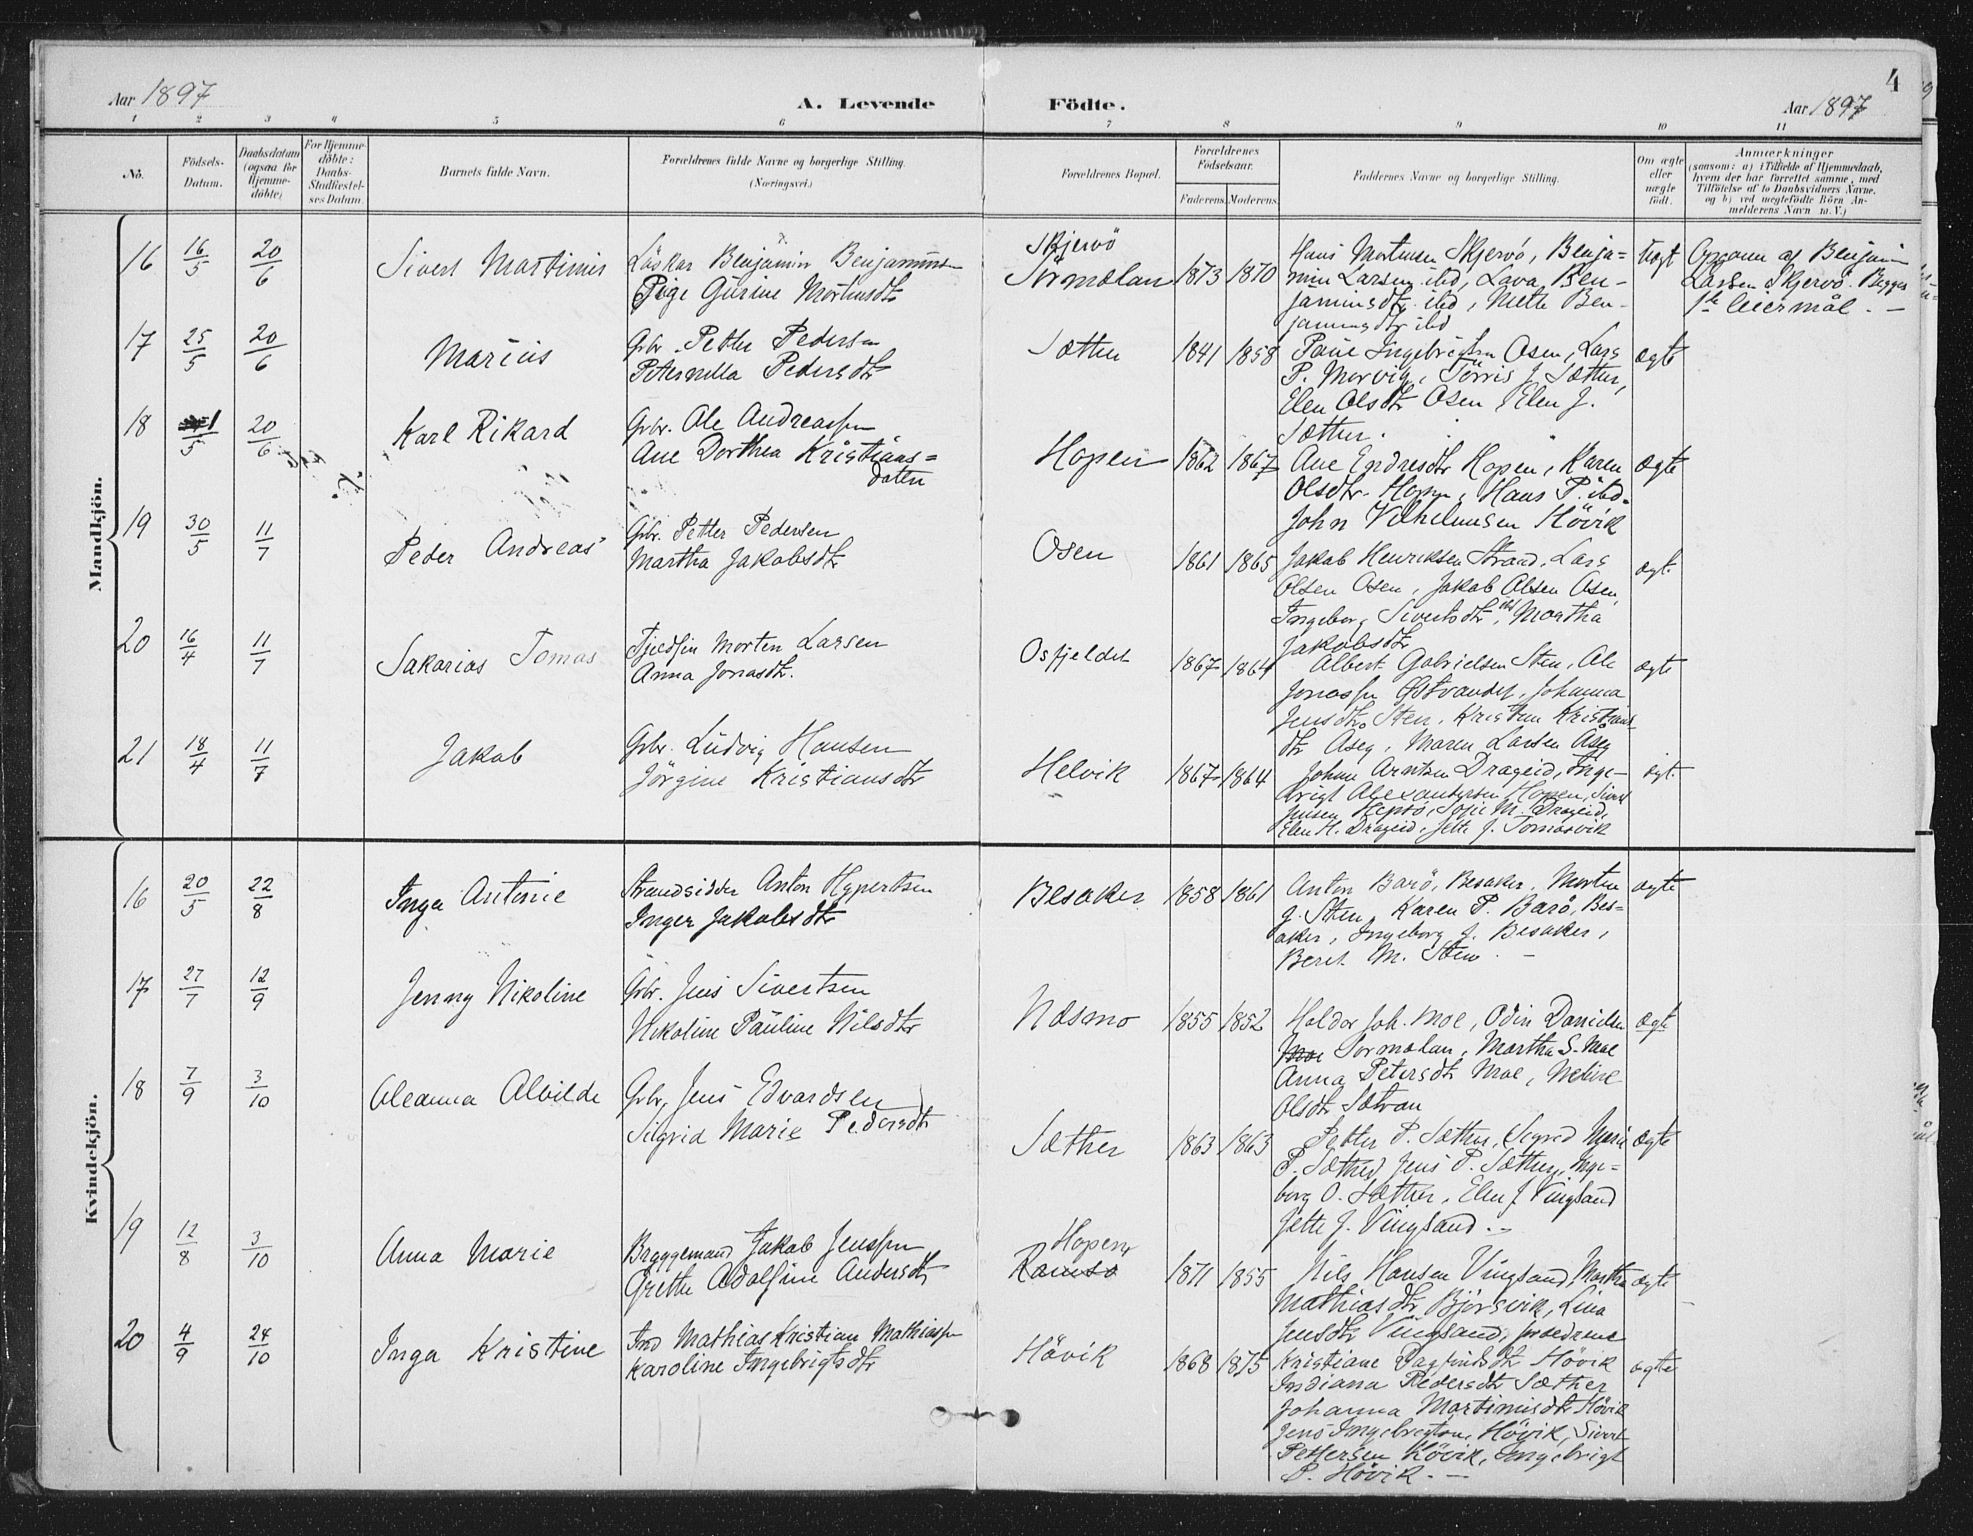 4
Aar 1897
A. Levende Födte.
Aar 1897
1 2 3 4 5 6 7 8 9 10 11
No.
Födsels-Datum.
Daabsdatum (ogsaa for Hjemme-döbte)
For Hjemme-döbte: Daabs-Stadfæstel-ses Datum.
Barnets fulde Navn.
Forældrenes fulde Navne og borgerlige Stilling.
(Næringsvei.)
Forældrenes Bopæl.
Forældrenes Födselsaar.
Faderens. Moderens.
Faddernes Navne og borgerlige Stilling.
Om ægte eller uægte födt.
Anmærkninger
(saasom: a) i Tilfælde af Hjemmedaab, hvem der har forrettet samme, med Tilföielse af to Daabsvidners Navne, og b) ved uegtefödte Börn An-melderens Navn m. V.)
Mandkjön.
16 16/5 20/6 Sivert Martinus
Löskar Benjamin Benjaminsen
Pige Gurine Mortensdtr
Skjervö
Sörmælan 1873 1870
Hans Mortensen Skjervö, Benja-
min Larsen ibd, Lava Ben-
jaminsdtr ibd, Mette Ben-
jaminsdtr ibd
Uægt
Opgavn af Benjamin
Larsen Skjervö. Begges
1ste leiermål. —
17 25/5 20/6 Marius
Gbr. Petter Pedersen
Peternella Pedersdtr
Sætter 1841 1858
Paul Ingebrigtsen Osen, Lars
P. Morvig, Törris J. Sætter,
Elen Olsdtr Osen, Elen J.
Sætter.
ægte
18 /5 20/6 Karl Rikard
Gbr. Ole Andreassen
Ane Dorthea Kristians=
datter
Hopen 1862 1867
Ane Endresdtr Hopen, Karen
Olsdtr. Hopen, Hans P. ibd.
John Vilhelmsen Hövik
ægte
19 30/5 11/7 Peder Andreas
Gbr. Petter Pedersen
Martha Jakobsdtr
Osen 1861 1865
Jakob Henriksen Strand, Lars
Olsen Osen, Jakob Olsen Osen,
Ingeborg Sivertsdtr ibd, Martha
Jakobsdtr
ægt.
20 16/4 11/7 Sakarias Tomas
Morten Larsen
Anna Jonasdtr.
Osfjeldet 1867 1864
Albert Gabrielsen Sten, Ole
Jonassen Østvandet, Johanna
Jensdtr Sten, Kristian
dtr Aseg, Maren Larsen Aseg
ægte
21 18/4 11/7 Jakob
Gbr. Ludvig Hansen
Jörgine Kristiansdtr
Helvik 1867 1864
Johan Arntsen Drageid, Inge-
brigt Alexandersen Hopen, Sivert
Jensen Hepsö, Sofie M. Drageid,
Elen H. Drageid, Jette J. Tomasvik
ægt.
Kvindekjön.
16 20/5 22/8 Inga Antonie
Strandsidder Anton Hypertsen
Inger Jakobsdtr
Besaker 1858 1861
Anton Barö, Besaker, Morten
J. Sten, Karen P. Barö, Bes-
aker, Ingeborg J. Besaker,
Beret M. Sten. —
ægte
17 27/7 12/9 Jenny Nikoline
Gbr. Jens Sivertsen
Nikoline Pauline Nilsdtr
Næsmo 1855 1852
Haldor Joh. Moe, Odin Danielsen
Moe Sörmælan, Martha S. Moe
Anna Petersdtr Moe, Meline
Olsdtr Sætran
ægte
18 7/9 3/10 Oleanna Alvilde
Gbr. Jens Edvardsen
Sigrid Marie Pedersdtr
Sæther 1863 1863
Petter P. Sæther, Sigrid Marie
P. Sæther, Jens P. Sæther, Inge=
borg O. Sæther, Elen J. Vingsand
Jette J. Vingsand. —
ægte
19 12/8 3/10 Anna Marie
Bryggemand Jakob Jenssen
Grethe Adolfine Andersdtr
Hopen,
Ramsø 1871 1855
Nils Hansen Vingsand, Martha
Mathiasdtr Bjørsvik, Lina
Jensdtr Vingsand, forældrene
ægte
20 4/9 24/10 Inga Kristine
Ind Mathias Kristian Mathiassen
Karoline Ingebrigtsdtr
Hövik 1868 1875
Kristiane Dagfinsdtr Hövik
Indiana Pedersdtr Sæther
Johanna Martinusdtr Hövik
Jens Ingebrigtsen, Hövik, Sivert
Pettersen Hövik, Ingebrigt
P. Hövik. —
ægte